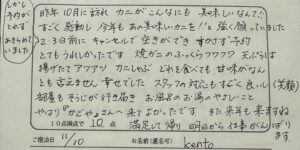 しかし
予約が
とれず
あきらめて
いました
昨年10月に訪れ カニがこんなにも 美味しいなんて!!
すごく感動し 今年もあの美味しいカニを!! と強く願っていました
2、3日前に キャンセルで空きができ すかさず予約
とてもうれしかったです 焼ガニのふっくらフワフワ 天ぷらは
揚げたてアツアツ カニしゃぶ どれを食べても 甘味がなん
とも言えません 幸せでした スタッフの対応もすごく良い(笑顔)
部屋もそうじが行き届き お風呂のお湯のやさしいこと
やはり さんへ来てよかったです また来年も来ますね
10点満点で 10 点 満足して帰り 明日から仕事がんばります
ご宿泊日 11/10 お名前(匿名可) kento